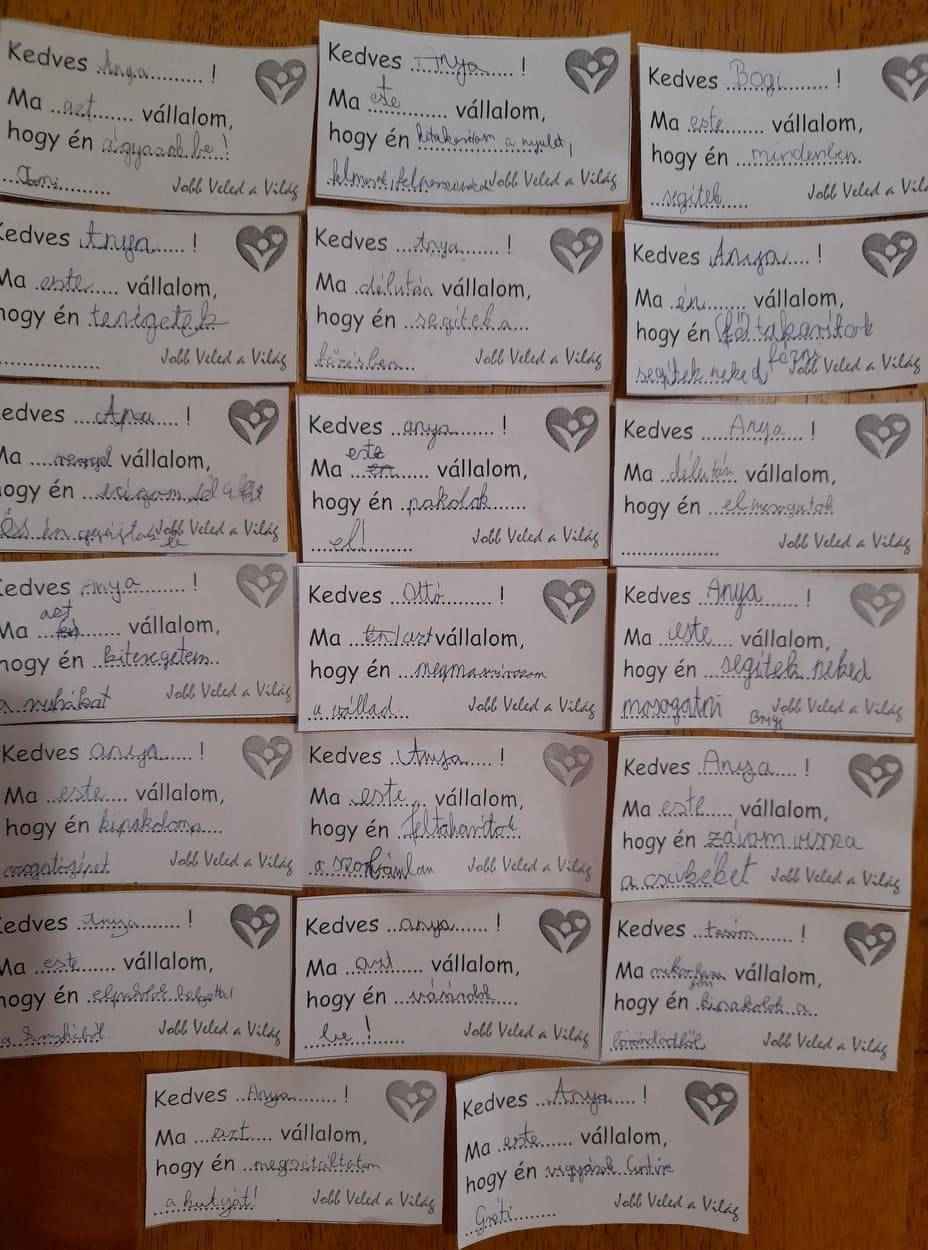 Kedves Anya !
Ma azt vállalom,
hogy én ágyazok be!
Jobb Veled a Világ
Kedves Anya !
Ma este vállalom,
hogy én kitakarítom a nyulat,
felmosok, Jobb Veled a Világ
Kedves Bogi !
Ma este vállalom,
hogy én mindenben
segitek Jobb Veled a Vilá
Kedves Anya !
Ma este vállalom,
hogy én terigetek
Jobb Veled a Világ
Kedves Anya !
Ma délután vállalom,
hogy én segitek a
főzésben Jobb Veled a Világ
Kedves Anya !
Ma én vállalom,
hogy én föltakarítok
segítek neked főzni Jobb Veled a Világ
edves Apa !
Ma vállalom,
ogy én
És én Jobb Veled a Világ
Kedves anya !
este
Ma vállalom,
hogy én pakolok
el! Jobb Veled a Világ
Kedves Anya !
Ma délután vállalom,
hogy én elmosogatok
Jobb Veled a Világ
Kedves Anya !
azt
Ma vállalom,
hogy én kiteregetem
a ruhákat Jobb Veled a Világ
Kedves Ottó !
Ma azt vállalom,
hogy én megmasszírozom
a vállad. Jobb Veled a Világ
Kedves Anya !
Ma este vállalom,
hogy én segítek neked
mosogatni Brigi Jobb Veled a Világ
Kedves anya !
Ma este vállalom,
hogy én kipakolom a
mosogatógépet Jobb Veled a Világ
Kedves Anya !
Ma este vállalom,
hogy én feltakarítok
a szobámban Jobb Veled a Világ
Kedves Anya !
Ma este vállalom,
hogy én závom vissza
a csirkéket Jobb Veled a Világ
edves Anya !
Ma este vállalom,
hogy én elpakolok
a konyhából. Jobb Veled a Világ
Kedves anya !
Ma azt vállalom,
hogy én vásárolok
be! Jobb Veled a Világ
Kedves tesóm !
Ma vállalom,
hogy én kipakolok a
bőröndödből Jobb Veled a Világ
Kedves Anya !
Ma azt vállalom,
hogy én megsétáltatom
a kutyát! Jobb Veled a Világ
Kedves Anya !
Ma este vállalom,
hogy én vigyázok
Gréti Jobb Veled a Világ